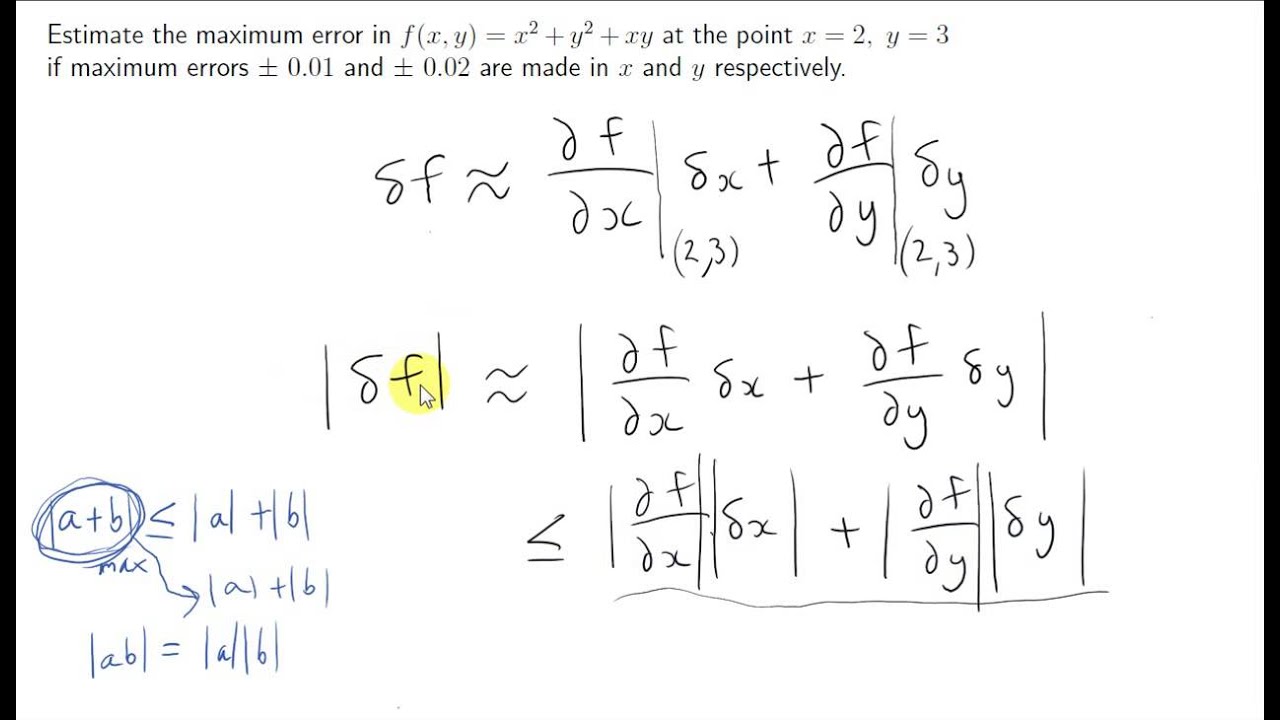 Estimate the maximum error in f(x, y) = x² + y² + xy at the point x = 2, y = 3
if maximum errors ± 0.01 and ± 0.02 are made in x and y respectively.
δf ≈ ∂f/∂x |(2,3) δx + ∂f/∂y |(2,3) δy
|δf| ≈ |∂f/∂x δx + ∂f/∂y δy|
≤ |∂f/∂x||δx| + |∂f/∂y||δy|
|a+b| ≤ |a| + |b|
max → |a| + |b|
|ab| = |a||b|